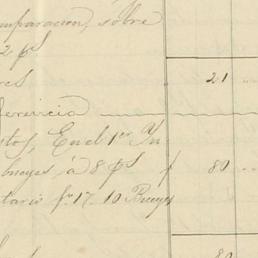 mparacion, sobre
2 ps
res 21
ferencia
stos, En el 1er Yn
bueyes á 8 ps f 80
ntario fo. 17 - 10 Bueyes
s
80